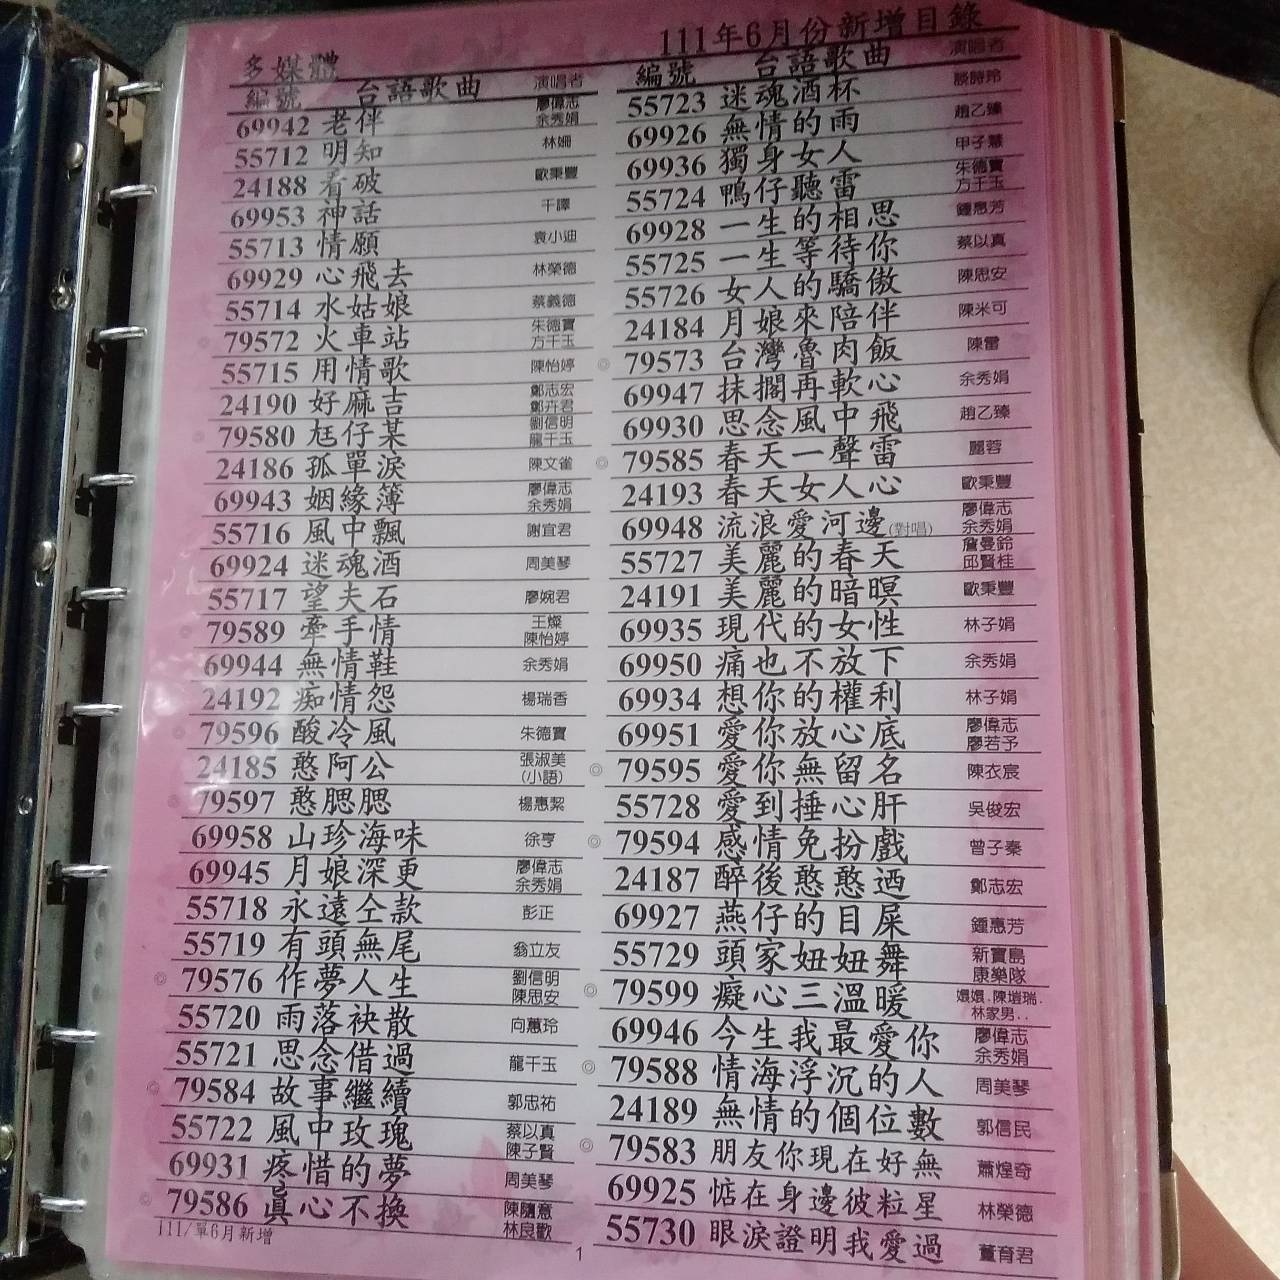 111年6月份新增目錄
多媒體
編號 台語歌曲 演唱者
69942 老伴 廖偉志 余秀娟
55712 明知 林姍
24188 看破 歐秉豐
69953 神話 千譁
55713 情願 袁小迪
69929 心飛去 林榮德
55714 水姑娘 蔡義德
79572 火車站 朱德寶 方千玉
55715 用情歌 陳怡婷
24190 好麻吉 鄭志宏 鄭卉君
79580 尪仔某 劉信明 龍千玉
24186 孤單淚 陳文雀
69943 姻緣簿 廖偉志 余秀娟
55716 風中飄 謝宜君
69924 迷魂酒 周美琴
55717 望夫石 廖婉君
79589 牽手情 王燦 陳怡婷
69944 無情鞋 余秀娟
24192 痴情怨 楊瑞香
79596 酸冷風 朱德寶
24185 憨阿公 張淑美(小語)
79597 憨腮腮 楊惠絜
69958 山珍海味 徐亨
69945 月娘深更 廖偉志 余秀娟
55718 永遠仝款 彭正
55719 有頭無尾 翁立友
◎ 79576 作夢人生 劉信明 陳思安
55720 雨落袂散 向蕙玲
55721 思念借過 龍千玉
◎ 79584 故事繼續 郭忠祐
55722 風中玫瑰 蔡以真 陳子賢
69931 疼惜的夢 周美琴
◎ 79586 眞心不換 陳隨意 林良歡
111/單6月新增
編號 台語歌曲 演唱者
55723 迷魂酒杯 談詩玲
69926 無情的雨 趙乙臻
69936 獨身女人 甲子慧
55724 鴨仔聽雷 朱德寶 方千玉
69928 一生的相思 鍾惠芳
55725 一生等待你 蔡以真
55726 女人的驕傲 陳思安
24184 月娘來陪伴 陳米可
◎ 79573 台灣魯肉飯 陳雷
69947 抹擱再軟心 余秀娟
69930 思念風中飛 趙乙臻
◎ 79585 春天一聲雷 麗蓉
24193 春天女人心 歐秉豐
69948 流浪愛河邊(對唱) 廖偉志 余秀娟
55727 美麗的春天 詹曼鈴 邱賢桂
24191 美麗的暗暝 歐秉豐
69935 現代的女性 林子娟
69950 痛也不放下 余秀娟
69934 想你的權利 林子娟
69951 愛你放心底 廖偉志 廖若予
◎ 79595 愛你無留名 陳衣宸
55728 愛到捶心肝 吳俊宏
◎ 79594 感情免扮戲 曾子秦
24187 醉後憨憨迺 鄭志宏
69927 燕仔的目屎 鍾惠芳
55729 頭家妞妞舞 新寶島康樂隊
◎ 79599 癡心三溫暖 嬛嬛.陳塏瑞.林家男..
69946 今生我最愛你 廖偉志 余秀娟
◎ 79588 情海浮沉的人 周美琴
24189 無情的個位數 郭信民
◎ 79583 朋友你現在好無 蕭煌奇
69925 惦在身邊彼粒星 林榮德
55730 眼淚證明我愛過 董育君
1